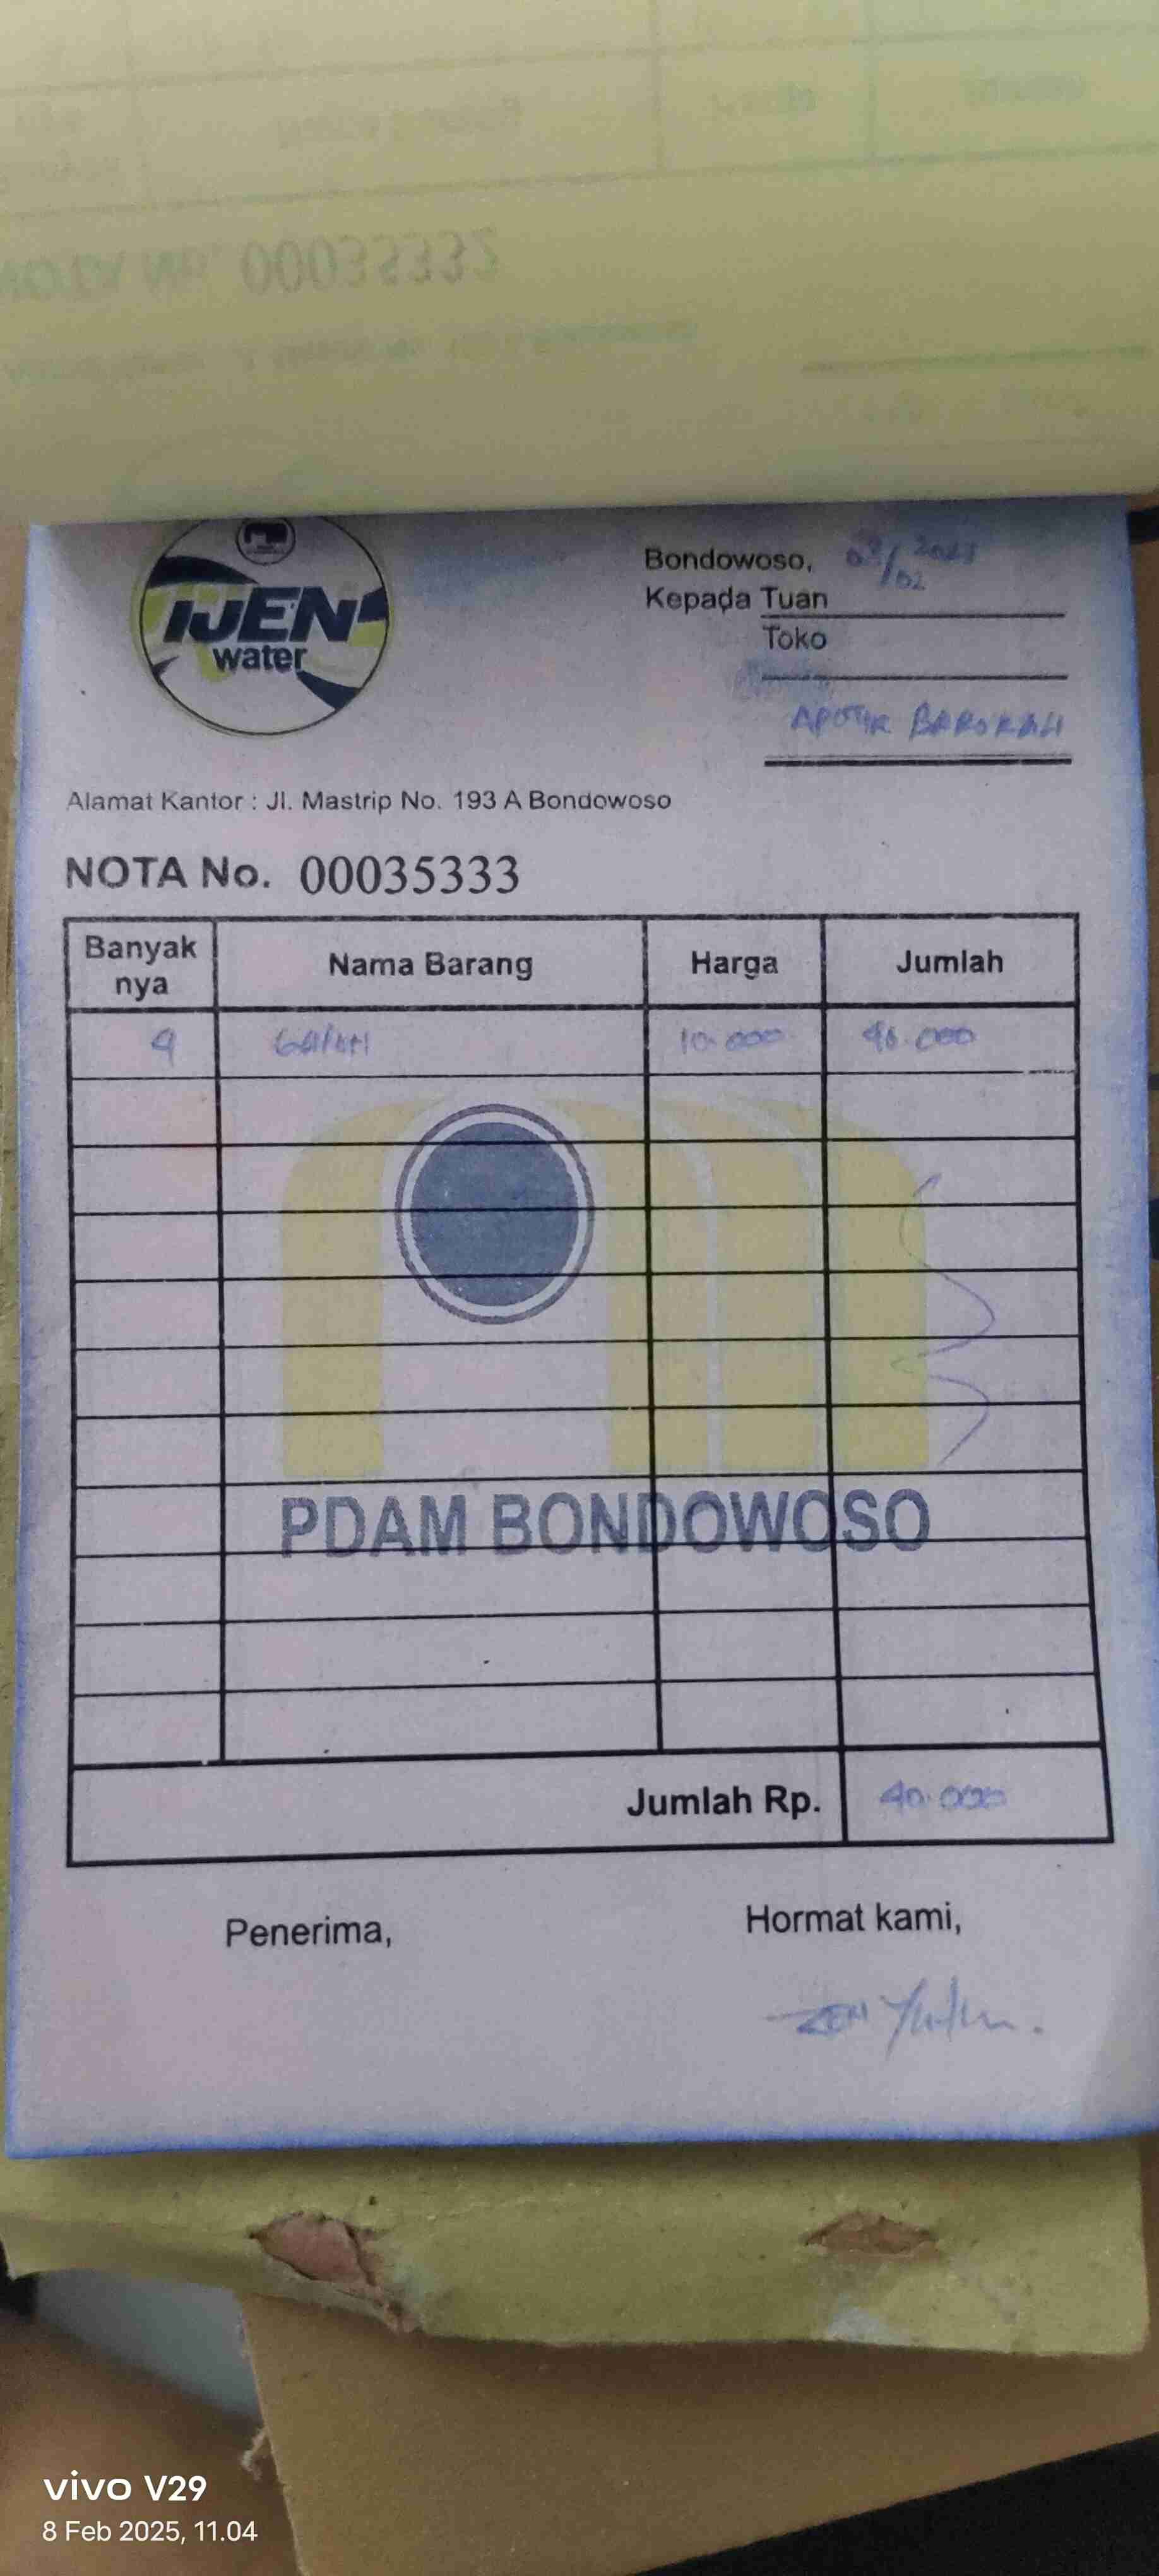 NOTA No. 00035332
IJEN
water
Bondowoso, 08/02 2025
Kepada Tuan
Toko
APOTIK BAROKAH
Alamat Kantor : Jl. Mastrip No. 193 A Bondowoso
NOTA No. 00035333
Banyak nya Nama Barang Harga Jumlah
4 GALON 10.000 40.000
PDAM BONDOWOSO
Jumlah Rp. 40.000
Penerima, Hormat kami,
ZEN
vivo V29
8 Feb 2025, 11.04